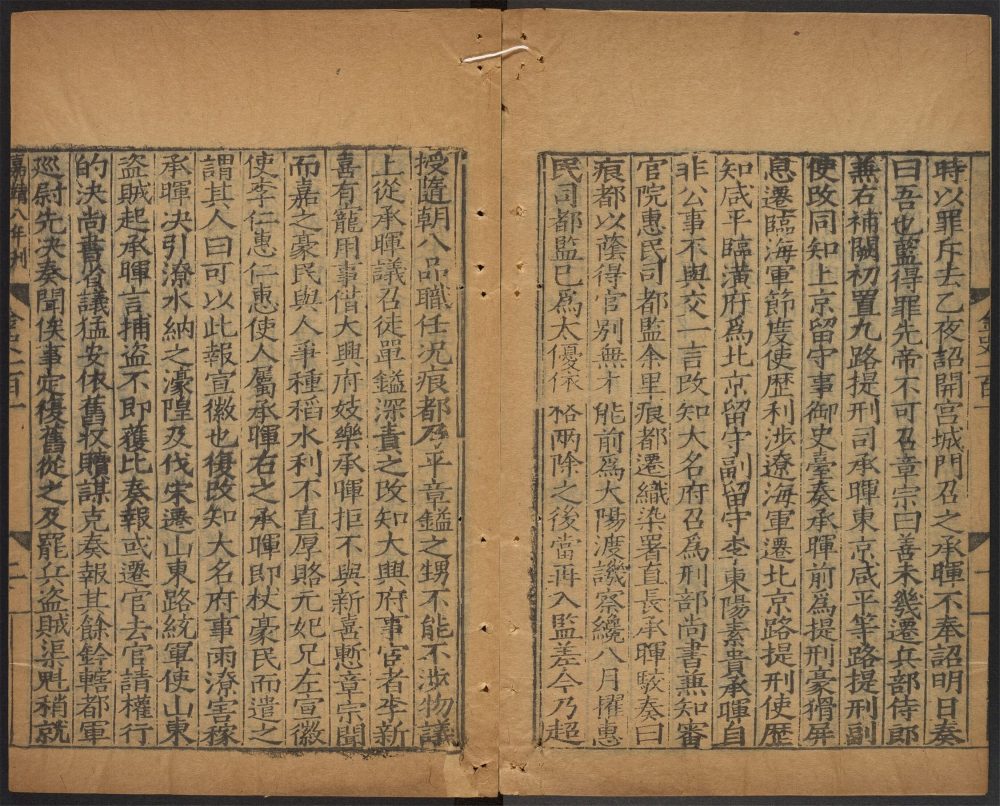 時以罪斥去乙夜詔開宫城門召之承暉不奉詔明日奏
曰吾也藍得罪先帝不可召章宗曰善未幾遷兵部侍郎
兼右補闕初置九路提刑司承暉東京咸平等路提刑副
使改同知上京留守事御史臺奏承暉前爲提刑豪猾屏
息遷臨海軍節度使歷利涉遼海軍遷北京路提刑使歷
知咸平臨潢府爲北京留守副留守李東陽素貴承暉自
非公事不與交一言改知大名府召爲刑部尚書兼知審
官院惠民司都監余里痕都遷織染署直長承暉駮奏曰
痕都以蔭得官别無才能前爲大陽渡譏察纔八月擢惠
民司都監已爲太優依格兩除之後當再入監差今乃超
授隨朝八品職任况痕都乃平章鎰之甥不能不涉物議
上從承暉議召徒單鎰深責之改知大興府事宦者李新
喜有寵用事借大興府妓樂承暉拒不與新喜慙章宗聞
而嘉之豪民與人爭種稻水利不直厚賂元妃兄左宣徽
使李仁惠仁惠使人屬承暉右之承暉即杖豪民而遣之
謂其人曰可以此報宣徽也復改知大名府事雨潦害稼
承暉决引潦水納之濠隍及伐宋遷山東路統軍使山東
盜賊起承暉言捕盜不即獲比奏報或遷官去官請權行
的决尚書省議猛安依舊收贖謀克奏報其餘鈐轄都軍
廵尉先决奏聞俟事定復舊從之及罷兵盜賊渠魁稍就
嘉靖八年刊
金史一百一
二